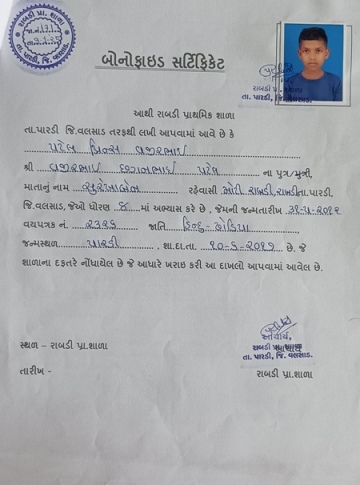 રાબડી પ્રા. શાળા
તા. પારડી, જિ. વલસાડ.
બોનોફાઇડ સર્ટિફિકેટ
રાબડી પ્રા. શાળા
તા. પારડી, જિ. વલસાડ.
આથી રાબડી પ્રાથમિક શાળા
તા.પારડી જિ.વલસાડ તરફથી લખી આપવામાં આવે છે કે
પટેલ પ્રિન્સ વજીરભાઇ
શ્રી વજીરભાઇ છગનભાઇ પટેલ ના પુત્ર/પુત્રી,
માતાનું નામ સુરેખાબેન રહેવાસી રાબડી, રાબડી તા.પારડી,
જિ.વલસાડ, જેઓ ધોરણ માં અભ્યાસ કરે છે , જેમની જન્મતારીખ ૩૧-૫-૨૦૧૨
વયપત્રક નં. ૨૩૨૬ જાતિ હિન્દુ-ધોડિયા
જન્મસ્થળ પારડી , શા.દા.તા. ૧૦-૬-૨૦૧૭ છે. જે
શાળાના દફતરે નોંધાયેલ છે જે આધારે ખરાઇ કરી આ દાખલો આપવામાં આવેલ છે.
સ્થળ - રાબડી પ્રા.શાળા
આચાર્ય,
રાબડી પ્રા. શાળા
તા. પારડી, જિ. વલસાડ.
તારીખ -
રાબડી પ્રા.શાળા